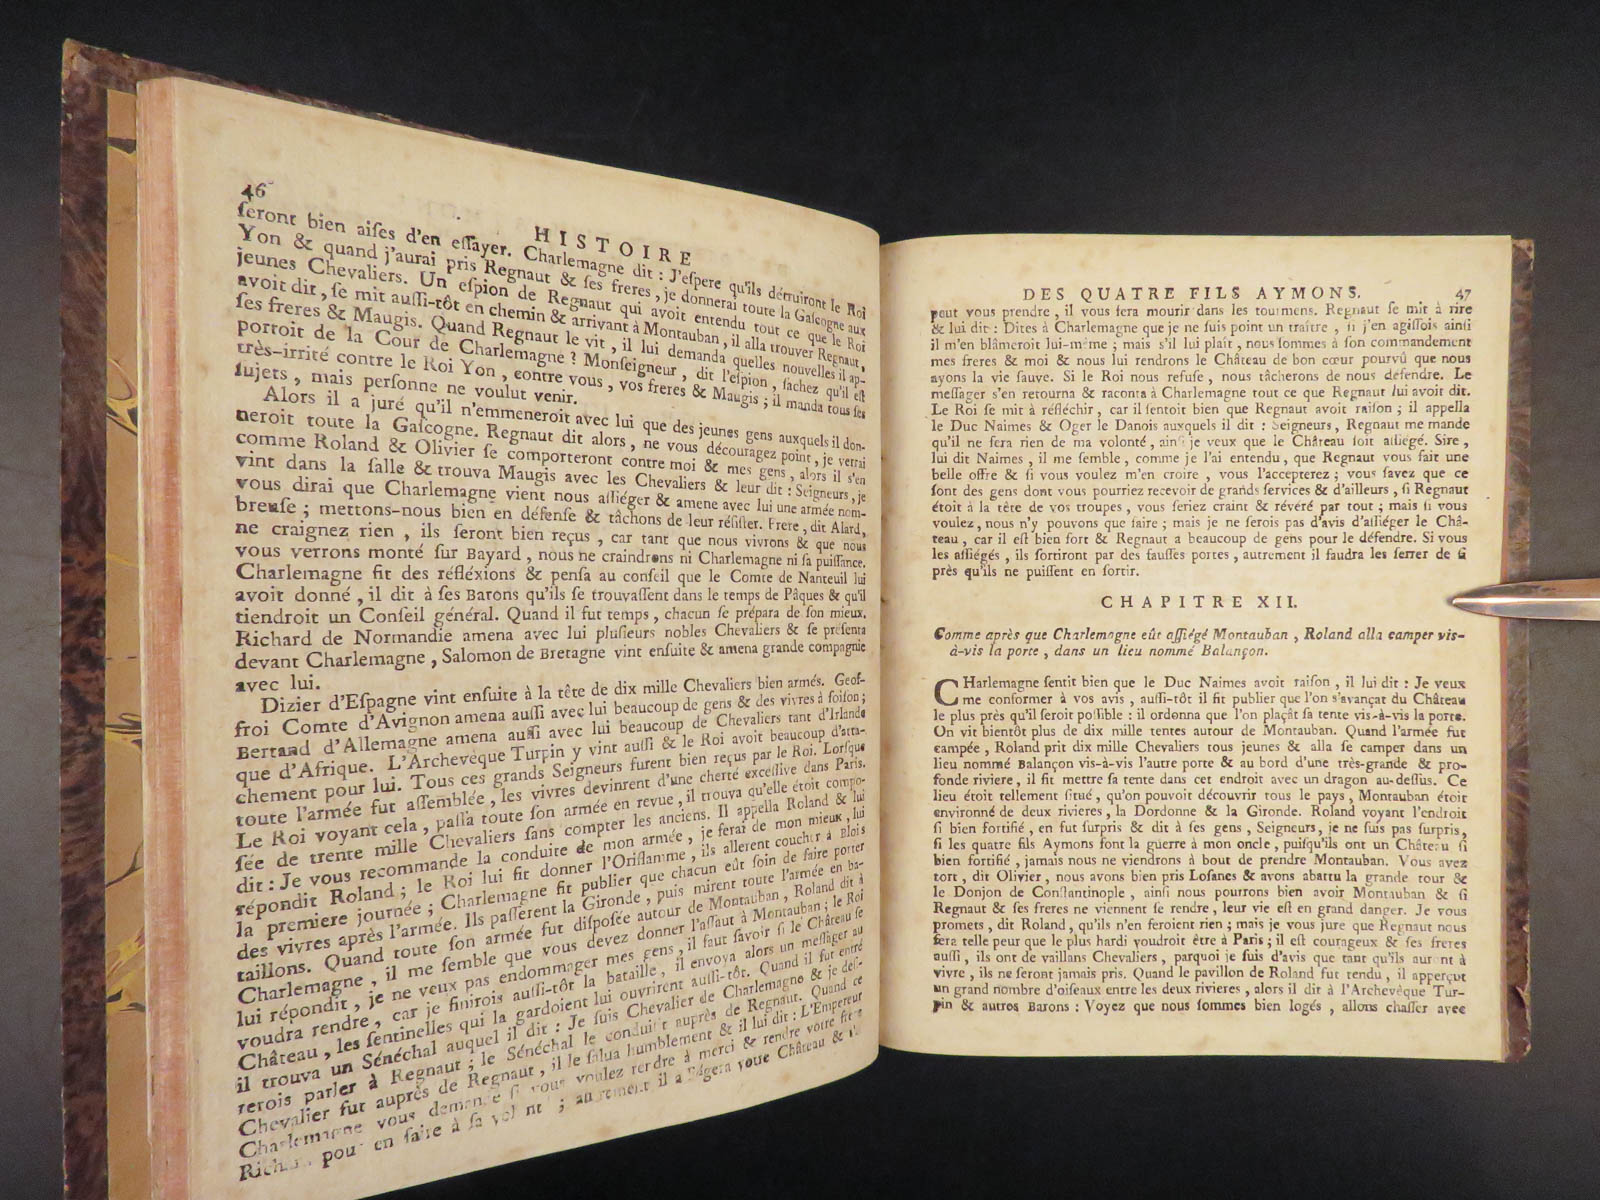 46
HISTOIRE
ſeront bien aiſes d'en eſſayer. Charlemagne dit : J'eſpere qu'ils détruiront le Roi
Yon & quand j'aurai pris Regnaut & ſes freres, je donnerai toute la Gaſcogne aux
jeunes Chevaliers. Un eſpion de Regnaut qui avoit entendu tout ce que le Roi
avoit dit, ſe mit auſſi-tôt en chemin & arrivant à Montauban, il alla trouver Regnaut,
ſes freres & Maugis. Quand Regnaut le vit, il lui demanda quelles nouvelles il ap-
portoit de la Cour de Charlemagne ? Monſeigneur, dit l'eſpion, ſachez qu'il eſt
très-irrité contre le Roi Yon, contre vous, vos freres & Maugis ; il manda tous ſes
ſujets, mais perſonne ne voulut venir.
Alors il a juré qu'il n'emmeneroit avec lui que des jeunes gens auxquels il don-
neroit toute la Gaſcogne. Regnaut dit alors, ne vous découragez point, je verrai
comme Roland & Olivier ſe comporteront contre moi & mes gens, alors il s'en
vint dans la ſalle & trouva Maugis avec les Chevaliers & leur dit : Seigneurs, je
vous dirai que Charlemagne vient nous aſſiéger & amene avec lui une armée nom-
breuſe ; mettons-nous bien en défenſe & tâchons de leur réſiſter. Frere, dit Alard,
ne craignez rien, ils ſeront bien reçus, car tant que nous vivrons & que nous
vous verrons monté ſur Bayard, nous ne craindrons ni Charlemagne ni ſa puiſſance.
Charlemagne fit des réfléxions & penſa au conſeil que le Comte de Nanteuil lui
avoit donné, il dit à ſes Barons qu'ils ſe trouvaſſent dans le temps de Pâques & qu'il
tiendroit un Conſeil général. Quand il fut temps, chacun ſe prépara de ſon mieux.
Richard de Normandie amena avec lui pluſieurs nobles Chevaliers & ſe préſenta
devant Charlemagne, Salomon de Bretagne vint enſuite & amena grande compagnie
avec lui.
Dizier d'Eſpagne vint enſuite à la tête de dix mille Chevaliers bien armés. Geof-
froi Comte d'Avignon amena auſſi avec lui beaucoup de gens & des vivres à foiſon ;
Bertand d'Allemagne amena auſſi avec lui beaucoup de Chevaliers tant d'Irlande
que d'Afrique. L'Archevêque Turpin y vint auſſi & le Roi avoit beaucoup d'atta-
chement pour lui. Tous ces grands Seigneurs furent bien reçus par le Roi. Lorſque
toute l'armée fut aſſemblée, les vivres devinrent d'une cherté exceſſive dans Paris.
Le Roi voyant cela, paſſa toute ſon armée en revue, il trouva qu'elle étoit compo-
ſée de trente mille Chevaliers ſans compter les anciens. Il appella Roland & lui
dit : Je vous recommande la conduite de mon armée, je ferai de mon mieux, lui
répondit Roland ; le Roi lui fit donner l'Oriflamme, ils allerent coucher à Blois
la premiere journée ; Charlemagne fit publier que chacun eût ſoin de faire porter
des vivres après l'armée. Ils paſſerent la Gironde, puis mirent toute l'armée en ba-
taillons. Quand toute ſon armée fut diſpoſée autour de Montauban, Roland dit à
Charlemagne, il me ſemble que vous devez donner l'aſſaut à Montauban ; le Roi
lui répondit, je ne veux pas endommager mes gens, il faut ſavoir ſi le Château ſe
voudra rendre, car je finirois auſſi-tôt la bataille, il envoya alors un meſſager au
Château, les ſentinelles qui la gardoient lui ouvrirent auſſi-tôt. Quand il fut entré
il trouva un Sénéchal auquel il dit : Je ſuis Chevalier de Charlemagne & je déſi-
rerois parler à Regnaut ; le Sénéchal le conduiſit auprès de Regnaut. Quand ce
Chevalier fut auprès de Regnaut, il le ſalua humblement & il lui dit : L'Empereur
Charlemagne vous demande ſi vous voulez rendre à merci & rendre votre frere
Richard pour en faire à ſa volonté ; autrement il aſſiégera votre Château &
DES QUATRE FILS AYMONS.
47
peut vous prendre, il vous fera mourir dans les tourmens. Regnaut ſe mit à rire
& lui dit : Dites à Charlemagne que je ne ſuis point un traître, ſi j'en agiſſois ainſi
il m'en blâmeroit lui-même ; mais s'il lui plaît, nous ſommes à ſon commandement
mes freres & moi & nous lui rendrons le Château de bon cœur pourvû que nous
ayons la vie ſauve. Si le Roi nous refuſe, nous tâcherons de nous défendre. Le
meſſager s'en retourna & raconta à Charlemagne tout ce que Regnaut lui avoit dit.
Le Roi ſe mit à réfléchir, car il ſentoit bien que Regnaut avoit raiſon ; il appella
le Duc Naimes & Oger le Danois auxquels il dit : Seigneurs, Regnaut me mande
qu'il ne fera rien de ma volonté, ainſi je veux que le Château ſoit aſſiégé. Sire,
lui dit Naimes, il me ſemble, comme je l'ai entendu, que Regnaut vous fait une
belle offre & ſi vous voulez m'en croire, vous l'accepterez ; vous ſavez que ce
ſont des gens dont vous pourriez recevoir de grands ſervices & d'ailleurs, ſi Regnaut
étoit à la tête de vos troupes, vous ſeriez craint & révéré par tout ; mais ſi vous
voulez, nous n'y pouvons que faire ; mais je ne ſerois pas d'avis d'aſſiéger le Châ-
teau, car il eſt bien fort & Regnaut a beaucoup de gens pour le défendre. Si vous
les aſſiégés, ils ſortiront par des fauſſes portes, autrement il faudra les ſerrer de ſi
près qu'ils ne puiſſent en ſortir.
CHAPITRE XII.
Comme après que Charlemagne eût aſſiégé Montauban, Roland alla camper vis-
à-vis la porte, dans un lieu nommé Balançon.
CHarlemagne ſentit bien que le Duc Naimes avoit raiſon, il lui dit : Je veux
me conformer à vos avis, auſſi-tôt il fit publier que l'on s'avançat du Château
le plus près qu'il ſeroit poſſible : il ordonna que l'on plaçât ſa tente vis-à-vis la porte.
On vit bientôt plus de dix mille tentes autour de Montauban. Quand l'armée fut
campée, Roland prit dix mille Chevaliers tous jeunes & alla ſe camper dans un
lieu nommé Balançon vis-à-vis l'autre porte & au bord d'une très-grande & pro-
fonde riviere, il fit mettre ſa tente dans cet endroit avec un dragon au-deſſus. Ce
lieu étoit tellement ſitué, qu'on pouvoit découvrir tous le pays, Montauban étoit
environné de deux rivieres, la Dordonne & la Gironde. Roland voyant l'endroit
ſi bien fortifié, en fut ſurpris & dit à ſes gens, Seigneurs, je ne ſuis pas ſurpris,
ſi les quatre fils Aymons font la guerre à mon oncle, puiſqu'ils ont un Château ſi
bien fortifié, jamais nous ne viendrons à bout de prendre Montauban. Vous avez
tort, dit Olivier, nous avons bien pris Loſanes & avons abattu la grande tour &
le Donjon de Conſtantinople, ainſi nous pourrons bien avoir Montauban & ſi
Regnaut & ſes freres ne viennent ſe rendre, leur vie eſt en grand danger. Je vous
promets, dit Roland, qu'ils n'en feroient rien ; mais je vous jure que Regnaut nous
fera telle peur que le plus hardi voudroit être à Paris ; il eſt courageux & ſes freres
auſſi, ils ont de vaillans Chevaliers, parquoi je ſuis d'avis que tant qu'ils auront à
vivre, ils ne ſeront jamais pris. Quand le pavillon de Roland fut tendu, il apperçut
un grand nombre d'oiſeaux entre les deux rivieres, alors il dit à l'Archevêque Tur-
pin & autres Barons : Voyez que nous ſommes bien logés, allons chaſſer avec